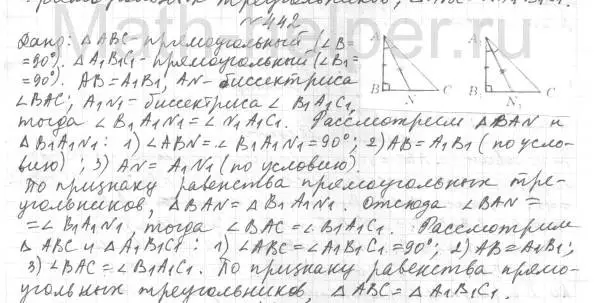 прямоугольных треугольников, Δ
№442
Дано: Δ ABC - прямоугольный (∠B=
=90°). Δ A1B1C1 - прямоугольный (∠B1=
=90°). AB=A1B1, AN - биссектриса
∠BAC; A1N1 - биссектриса ∠ B1A1C1,
тогда ∠ B1A1N1 = ∠ N1A1C1. Рассмотрим Δ BAN и
Δ B1A1N1: 1) ∠ABN = ∠B1A1N1 = 90°; 2) AB = A1B1 (по усло-
вию); 3) AN = A1N1 (по условию).
По признаку равенства прямоугольных тре-
угольников, Δ BAN = Δ B1A1N1. Отсюда ∠BAN =
= ∠ B1A1N1, тогда ∠ BAC = ∠B1A1C1. Рассмотрим
Δ ABC и Δ A1B1C1: 1) ∠ABC = ∠A1B1C1 = 90°; 2) AB = A1B1;
3) ∠BAC = ∠B1A1C1. По признаку равенства прямо-
угольных треугольников, Δ ABC = Δ A1B1C1.
A
B N C
A1
B1 N1 C